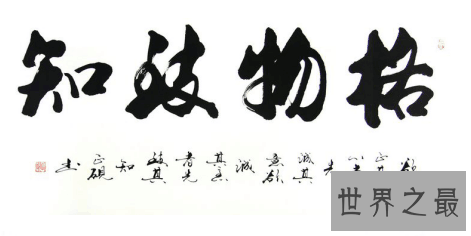 格物致知
欲正其心者先诚其意欲诚其意者先致其知
正砚书
世界之最